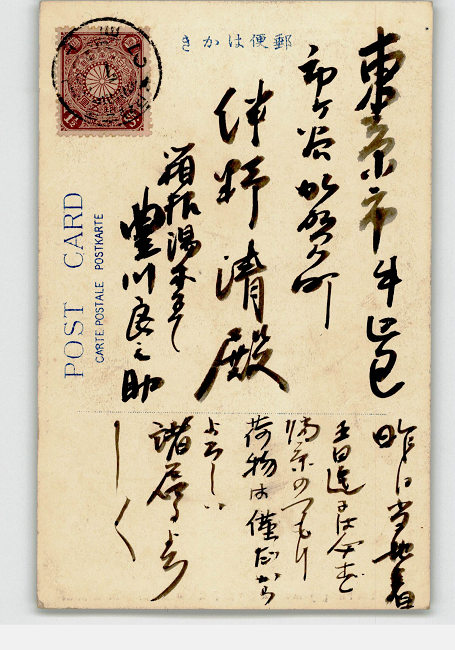 郵便はかき
東京市牛込区
市ヶ谷加賀町
伊野清殿
箱根湯本にて
豊川良之助
POST CARD
CARTE POSTALE POSTKARTE
1½
昨日当地着
五日迄には
帰京のつもり
荷物は僅だから
よろしい
諸君
しく